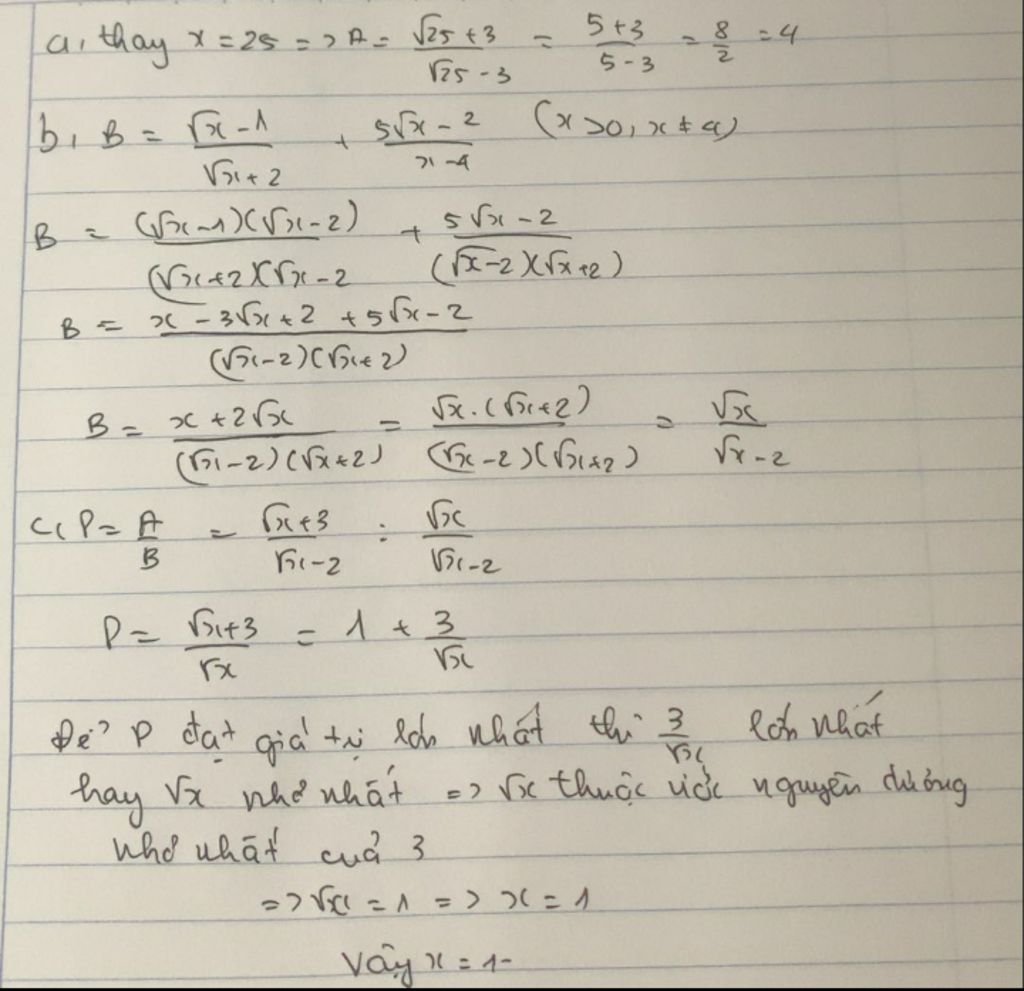 a, thay x = 25 => A = (√25 + 3)/(√25 - 3) = (5+3)/(5-3) = 8/2 = 4
b, B = (√x - 1)/(√x + 2) + (5√x - 2)/(x - 4) (x > 0, x ≠ 4)
B = (√x - 1)(√x - 2)/(√x + 2)(√x - 2 + (5√x - 2)/(√x - 2)(√x + 2)
B = (x - 3√x + 2 + 5√x - 2)/(√x - 2)(√x + 2)
B = (x + 2√x)/(√x - 2)(√x + 2) = √x.(√x + 2)/(√x - 2)(√x + 2) = √x/(√x - 2)
c, P = A/B = (√x + 3)/(√x - 2) : √x/(√x - 2)
P = (√x + 3)/√x = 1 + 3/√x
Để P đạt giá trị lớn nhất thì 3/√x lớn nhất
hay √x nhỏ nhất => √x thuộc ước nguyên dương
nhỏ nhất của 3
=> √x = 1 => x = 1
Vậy x = 1-